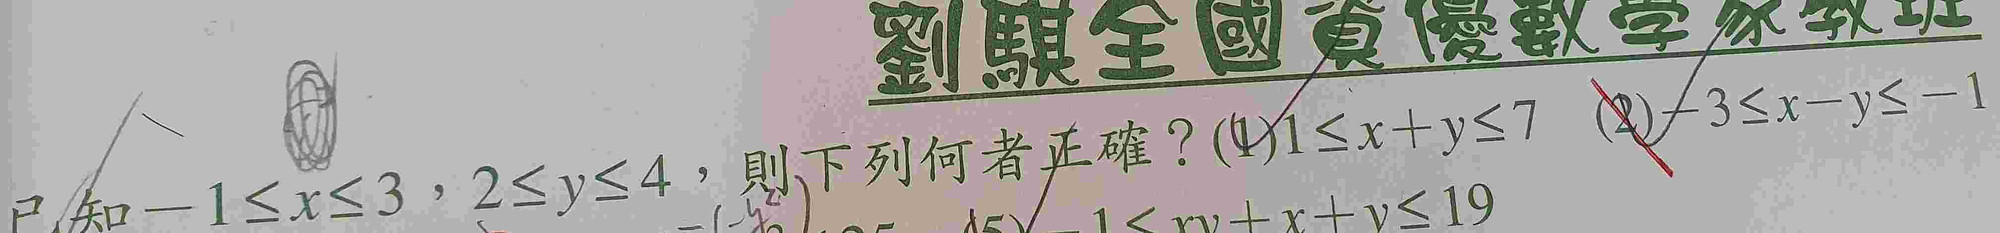 劉騏全國資優數學家教班
已知－1≤x≤3，2≤y≤4，則下列何者正確？(1)1≤x+y≤7 (2)−3≤x−y≤−1
(5)−1≤xy+x+y≤19